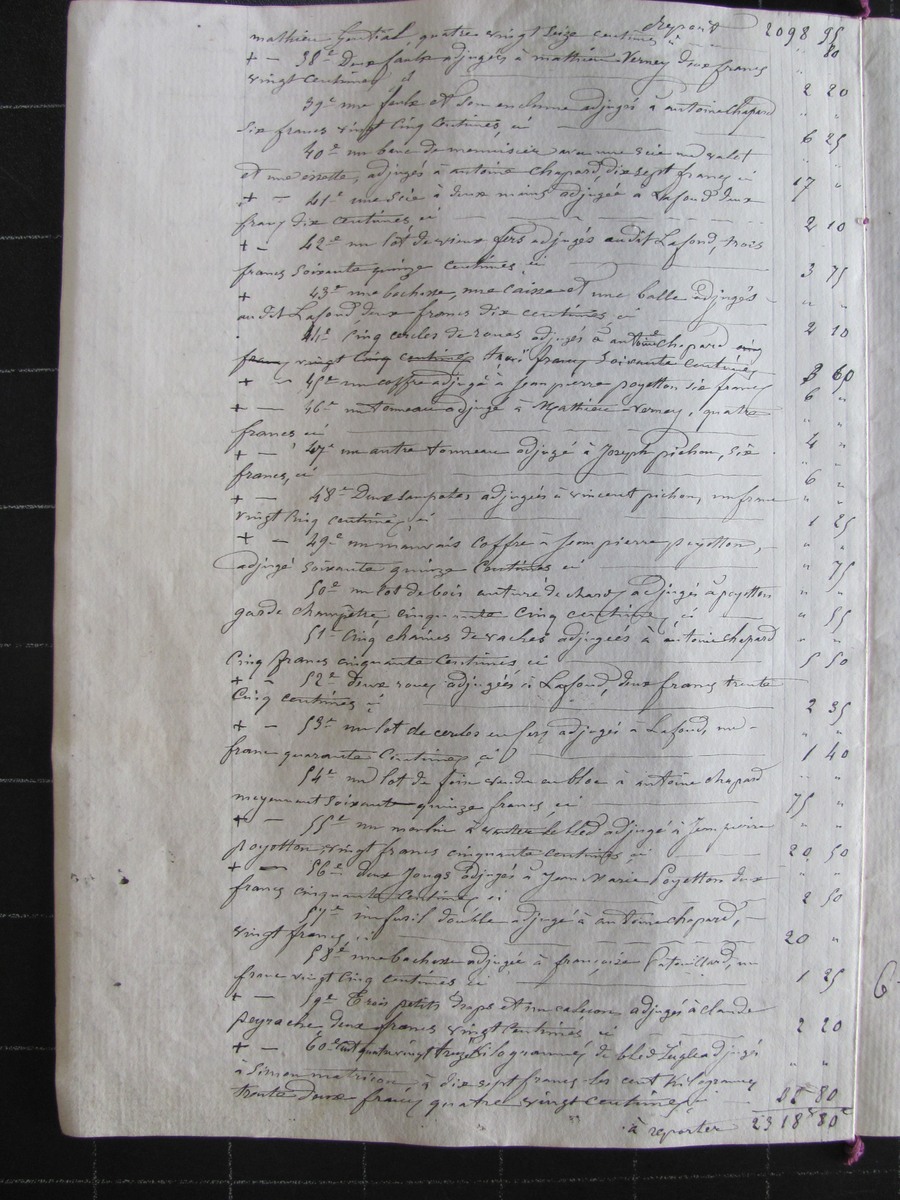 Report 2098 95
mathieu quatre vingt seize centimes 80
+ — 38e Deux faulx adjugés à mathieu Verney deux francs
vingt centimes ci 2 20
39e une faulx et son enclume adjugés à antoine chapard
six francs vingt cinq centimes, ci 6 25
40e un banc de menuisier avec une scie un valet
et une adjugés à antoine chapard, dix sept francs ci 17 "
+ — 41e une scie à deux mains adjugée à Lafond deux
francs dix centimes ci 2 10
+ — 42e un lot de vieux fers adjugés audit Lafond, trois
francs soixante quinze centimes ci 3 75
+ 43e une bachasse, une caisse et une balle adjugés
audit Lafond deux francs dix centimes ci 2 10
44e Cinq cercles de roues adjugés à antoine chapard cinq
francs vingt cinq centimes trois francs soixante centimes 3 60
+ — 45e un coffre adjugé à jean pierre poyetton six francs 6 "
+ — 46e un tonneau adjugé à Mathieu Verney, quatre
francs ci 4 "
+ — 47e un autre tonneau adjugé à Joseph pichon, six
francs, ci 6 "
+ — 48e Deux adjugés à vincent pichon, un franc
vingt cinq centimes, ci 1 25
+ — 49e un mauvais coffre à jean pierre poyetton,
adjugé soixante quinze centimes ci " 75
50e un lot de bois adjugés à poyetton
garde champêtre, cinquante cinq centimes, ci " 55
51e Cinq chaines de vaches adjugées à antoine chapard
Cinq francs cinquante centimes ci 5 50
+ — 52e deux roues adjugées à Lafond, deux francs trente
Cinq centimes ci 2 35
+ — 53e un lot de cercles en fers adjugés à Lafond, un
franc quarante Centimes ci 1 40
54e un lot de foin vendu en bloc à antoine chapard
moyennant soixante quinze francs ci 75 "
+ — 55e un moulin à vanter le bled adjugé à Jean pierre
poyetton vingt francs cinquante centimes ci 20 50
+ — 56e deux Jougs adjugés à Jean Marie Poyetton deux
francs cinquante centimes ci 2 50
57e un fusil double adjugé à antoine chapard,
vingt francs ci 20 "
58e une bachasse adjugée à françoise un
franc vingt cinq centimes ci 1 25
+ — 59e Trois petits draps et un caleçon adjugés à claude
peyrache deux francs vingt centimes ci 2 20
+ — 60e Cent quatre vingt treize Kilogrammes de bled seigle adjugé
à Simon à dix sept francs les cent Kilogrammes
trente deux francs quatre vingt centimes, ci 80
à reporter 2318 80c